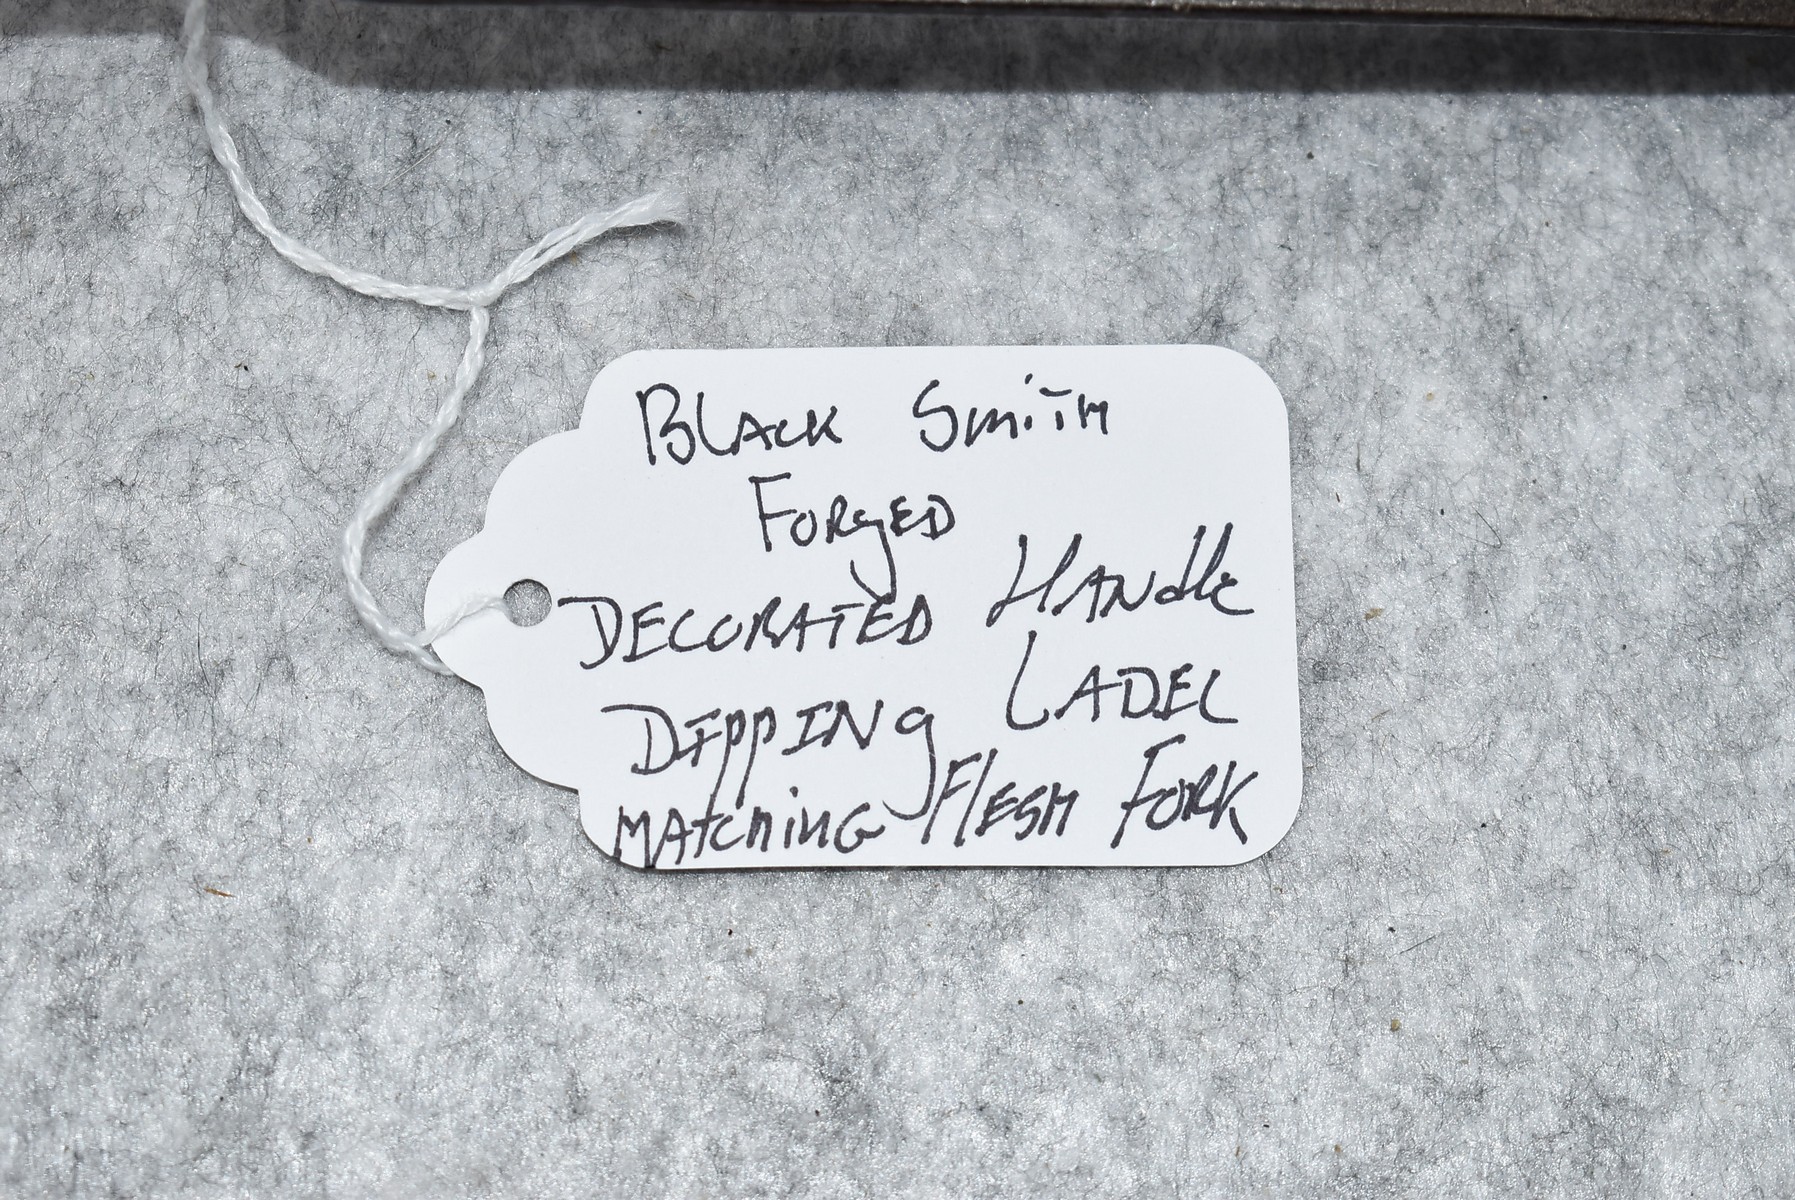 Black Smith
Forged
Decorated Handle
Dipping Ladel
Matching Flesh Fork